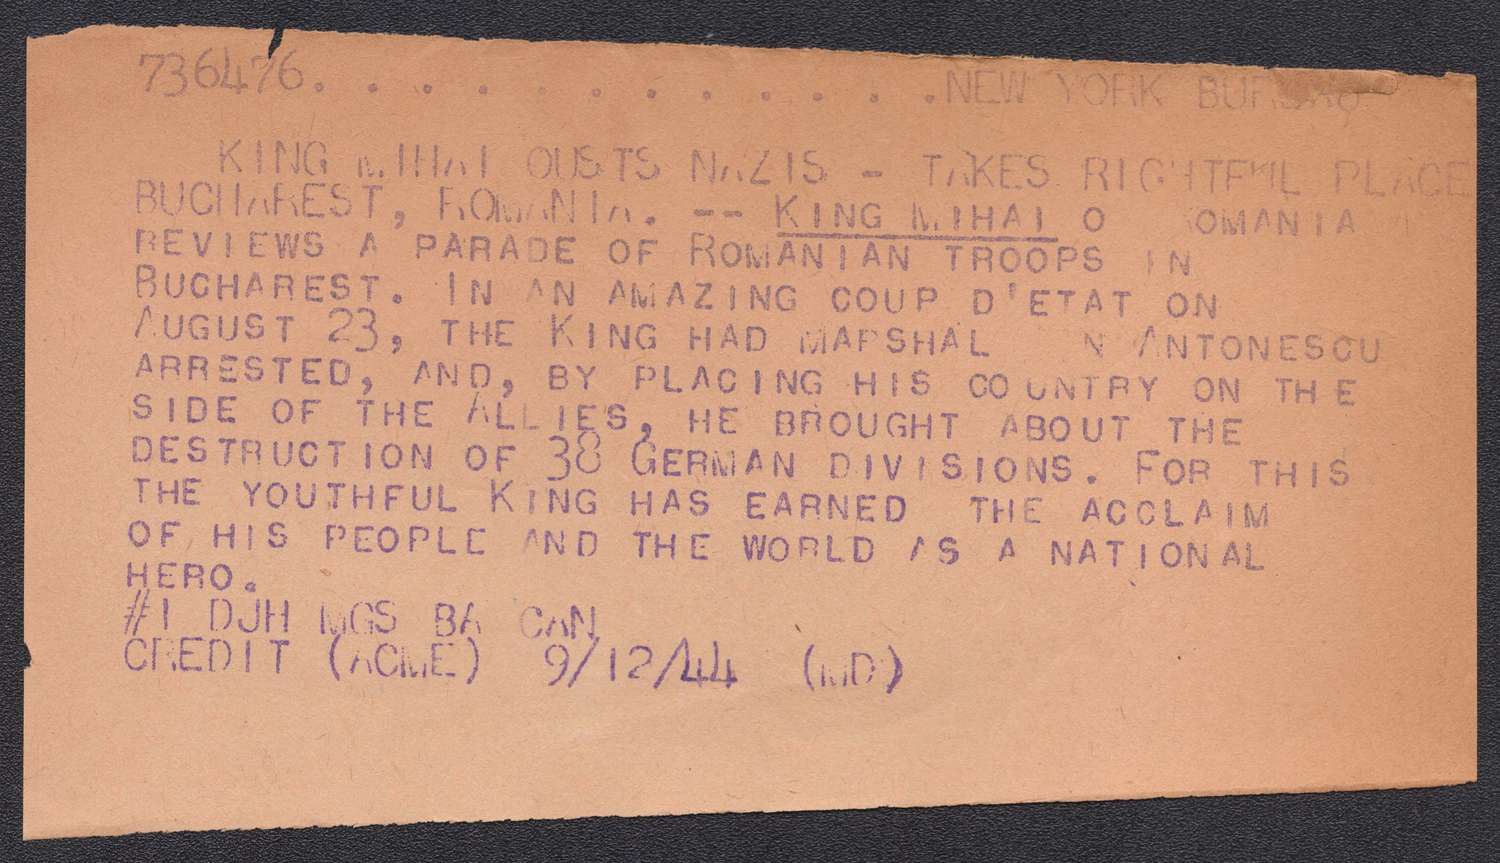 736476. . . . . . . . . . . .NEW YORK BUREAU
KING MIHAI OUSTS NAZIS - TAKES RIGHTFUL PLACE
BUCHAREST, ROMANIA. -- KING MIHAI O ROMANIA
REVIEWS A PARADE OF ROMANIAN TROOPS IN
BUCHAREST. IN AN AMAZING COUP D'ETAT ON
AUGUST 23, THE KING HAD MARSHAL N ANTONESCU
ARRESTED, AND, BY PLACING HIS COUNTRY ON THE
SIDE OF THE ALLIES, HE BROUGHT ABOUT THE
DESTRUCTION OF 38 GERMAN DIVISIONS. FOR THIS
THE YOUTHFUL KING HAS EARNED THE ACCLAIM
OF HIS PEOPLE AND THE WORLD AS A NATIONAL
HERO.
#1 DJH MGS BA CAN
CREDIT (ACME) 9/12/44 (MD)